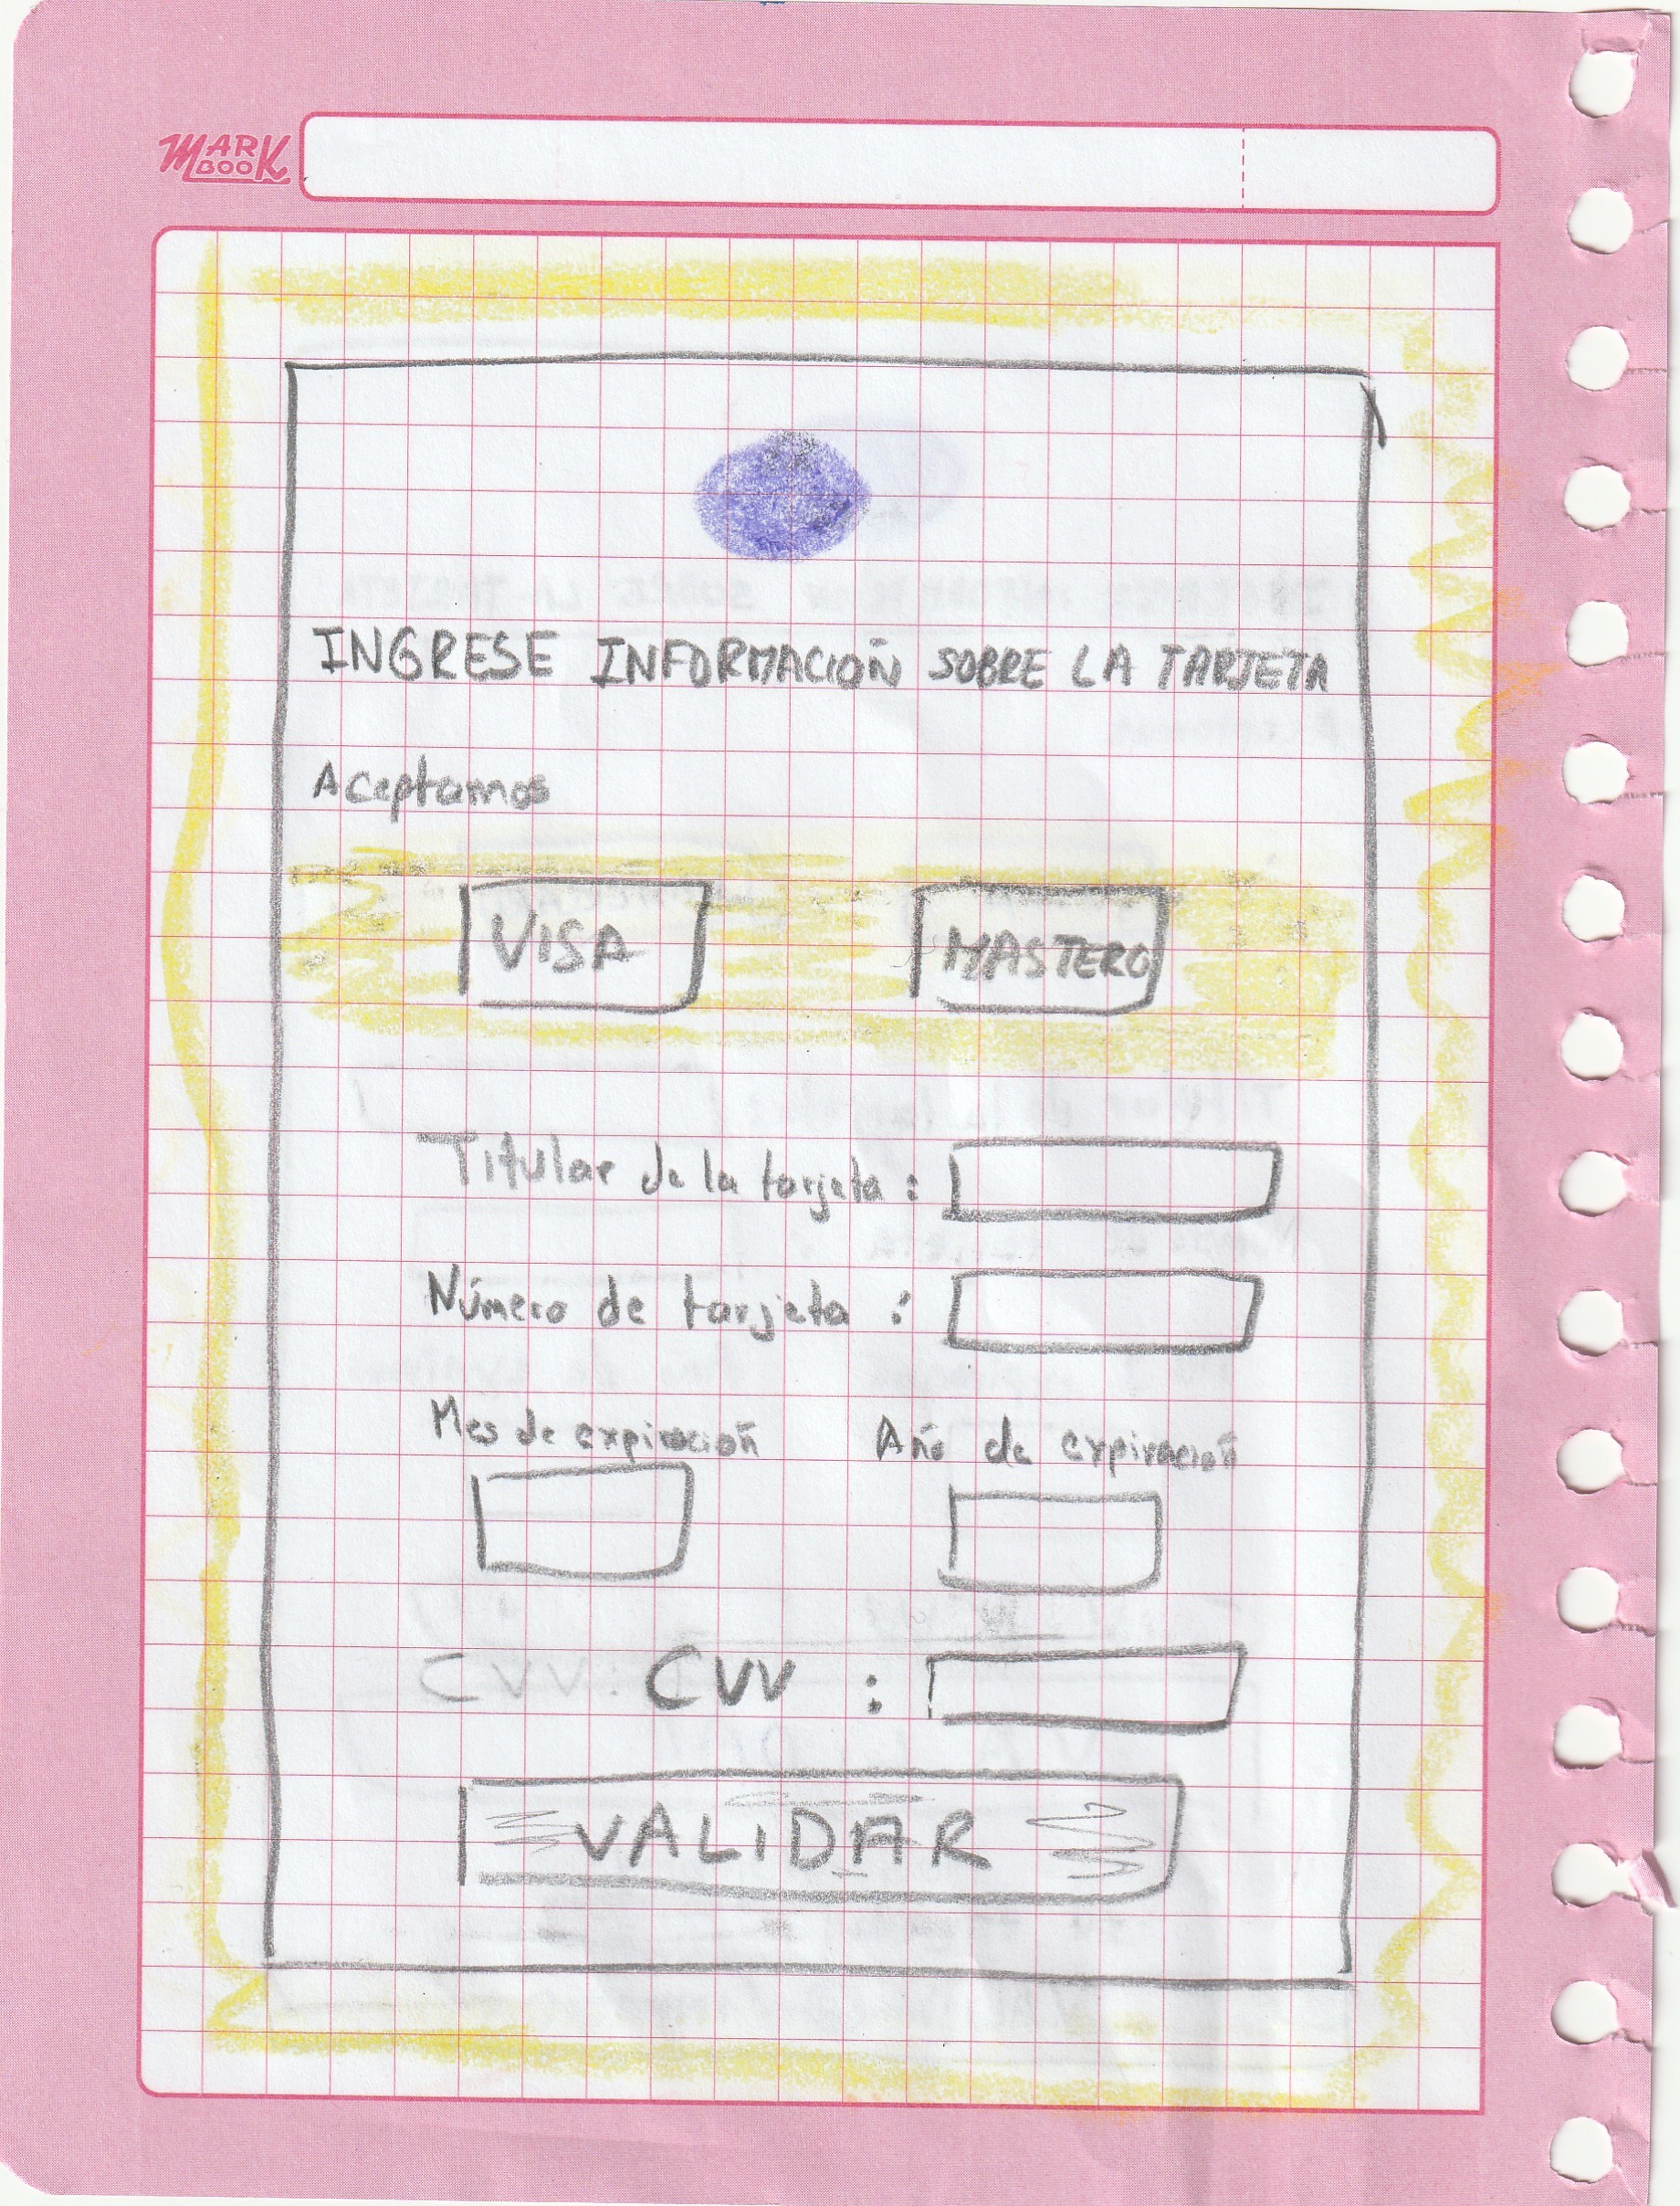 MARK BOOK
INGRESE INFORMACIOÑ SOBRE LA TARJETA
Aceptamos
VISA MASTERO
Titular de la tarjeta :
Número de tarjeta :
Mes de expiracioñ Año de expiracioñ
CVV :
VALIDAR